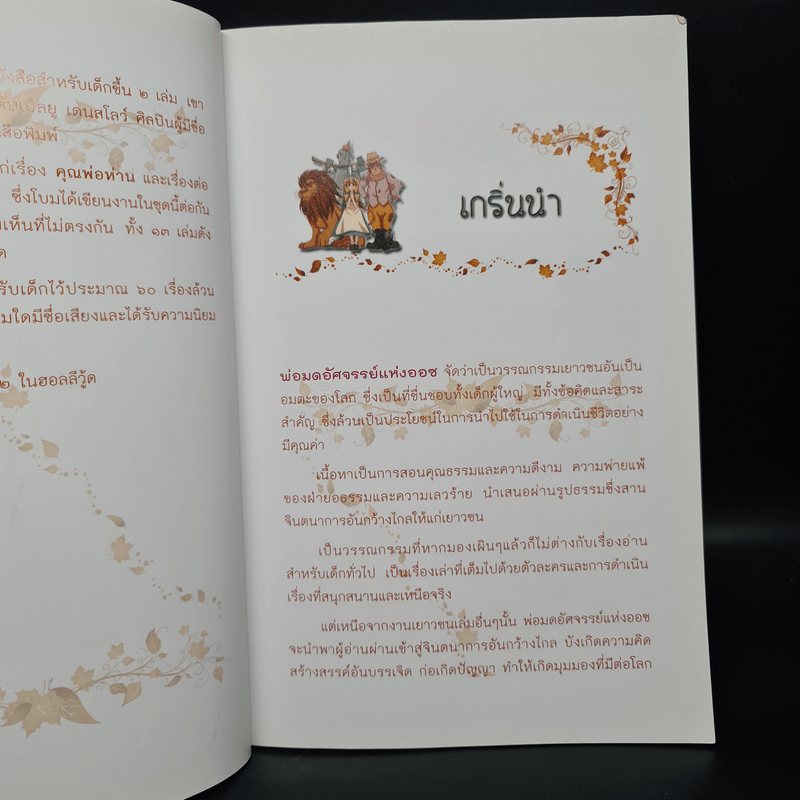 งสือสำหรับเด็กขึ้น ๒ เล่ม เขา
เดนสโลว์ ศิลปินผู้มีชื่อ
สือพิมพ์
ก่เรื่อง คุณพ่อห่าน และเรื่องต่อ
ซึ่งโบมได้เขียนงานในชุดนี้ต่อกัน
เห็นที่ไม่ตรงกัน ทั้ง ๑๓ เล่มดัง
ด
รับเด็กไว้ประมาณ ๖๐ เรื่องล้วน
มใดมีชื่อเสียงและได้รับความนิยม
๒ ในฮอลลีวู้ด
เกริ่นนำ
พ่อมดอัศจรรย์แห่งออซ จัดว่าเป็นวรรณกรรมเยาวชนอันเป็น
อมตะของโลก ซึ่งเป็นที่ชื่นชอบทั้งเด็กผู้ใหญ่ มีทั้งข้อคิดและสาระ
สำคัญ ซึ่งล้วนเป็นประโยชน์ในการนำไปใช้ในการดำเนินชีวิตอย่าง
มีคุณค่า
เนื้อหาเป็นการสอนคุณธรรมและความดีงาม ความพ่ายแพ้
ของฝ่ายอธรรมและความเลวร้าย นำเสนอผ่านรูปธรรมซึ่งสาน
จินตนาการอันกว้างไกลให้แก่เยาวชน
เป็นวรรณกรรมที่หากมองเผินๆแล้วก็ไม่ต่างกับเรื่องอ่าน
สำหรับเด็กทั่วไป เป็นเรื่องเล่าที่เต็มไปด้วยตัวละครและการดำเนิน
เรื่องที่สนุกสนานและเหนือจริง
แต่เหนือจากงานเยาวชนเล่มอื่นๆนั้น พ่อมดอัศจรรย์แห่งออซ
จะนำพาผู้อ่านผ่านเข้าสู่จินตนาการอันกว้างไกล บังเกิดความคิด
สร้างสรรค์อันบรรเจิด ก่อเกิดปัญญา ทำให้เกิดมุมมองที่มีต่อโลก